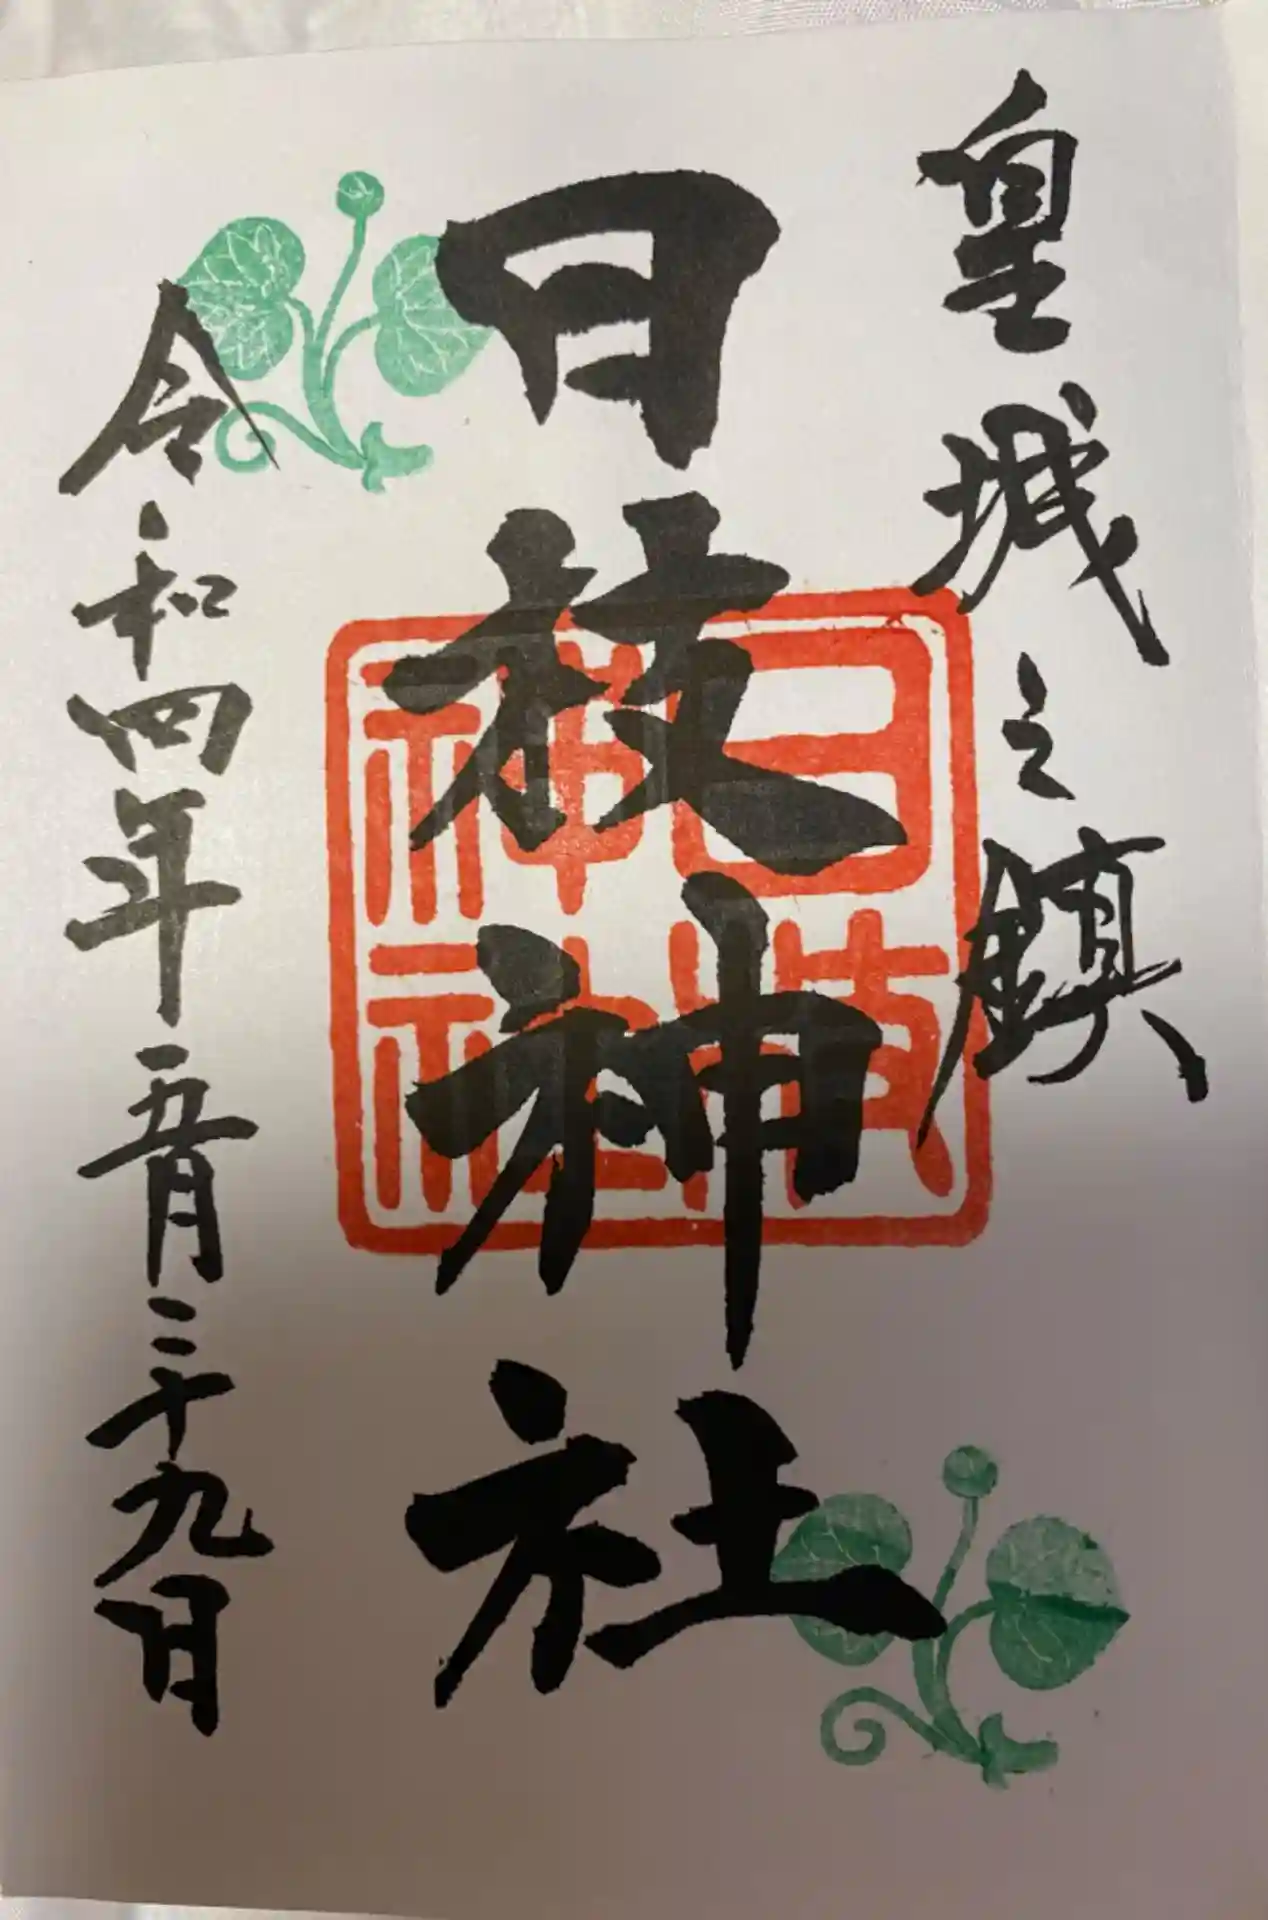 皇城之鎮
日枝神社
日枝
神社
令和四年五月二十九日